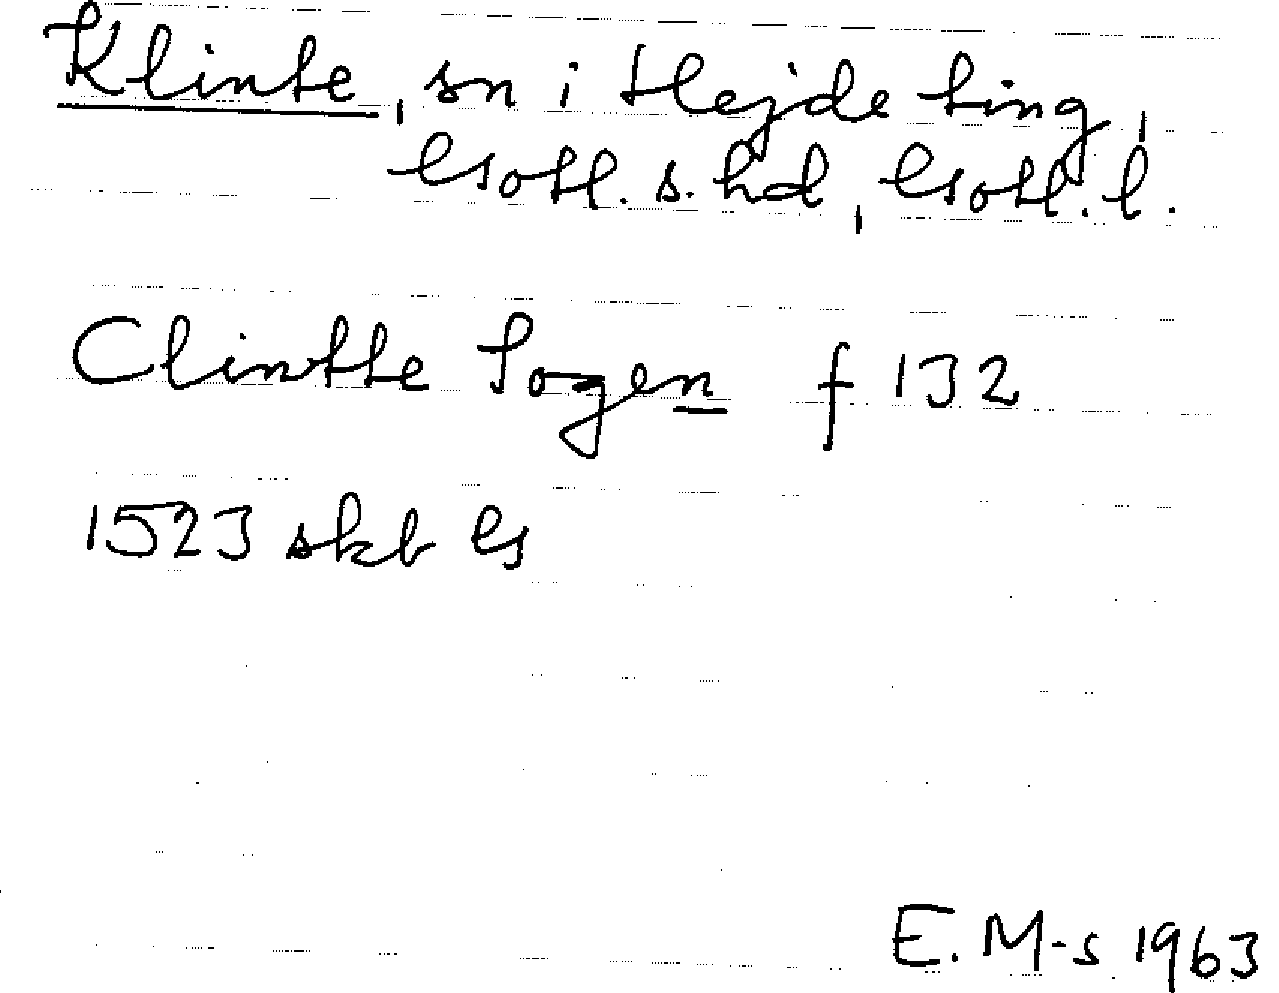 Klinte, sn i Hejde ting,
Gotl. s. hd, Gotl. l.
Clintthe Sogen f 132
1523 skb G
E. M-s 1963